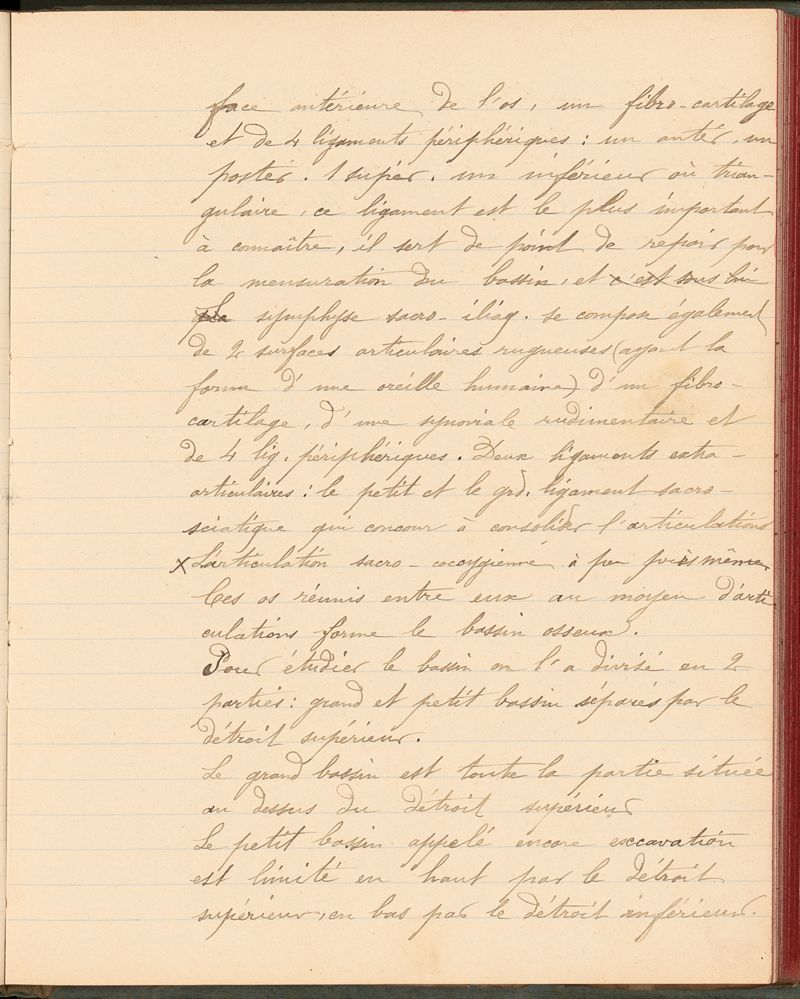 face antérieure de l'os, un fibro-cartilage
et de 4 ligaments périphériques : un antér, un
postér. 1 supér. un inférieur où trian-
gulaire, ce ligament est le plus important
à connaître, il sert de point de repair pour
la mensuration du bassin, et c'est sous lui
La symphyse sacro-iliaq. se compose également
de 2 surfaces articulaires rugueuses (ayant la
forme d'une oreille humaine) d'un fibro-
cartilage, d'une synoviale rudimentaire et
de 4 lig. périphériques. Deux ligaments extra-
articulaires : le petit et le grd. ligament sacro-
sciatique qui concour à consolider l'articulation
x L'articulation sacro-coccygienne à peu près même
Ces os réunis entre eux au moyen d'arti-
culations forme le bassin osseux.
Pour étudier le bassin on l'a divisé en 2
parties : grand et petit bassin séparés par le
détroit supérieur.
Le grand bassin est toute la partie située
au dessus du détroit supérieur
Le petit bassin appelé encore exccavation
est limité en haut par le détroit
supérieur, en bas par le détroit inférieur.